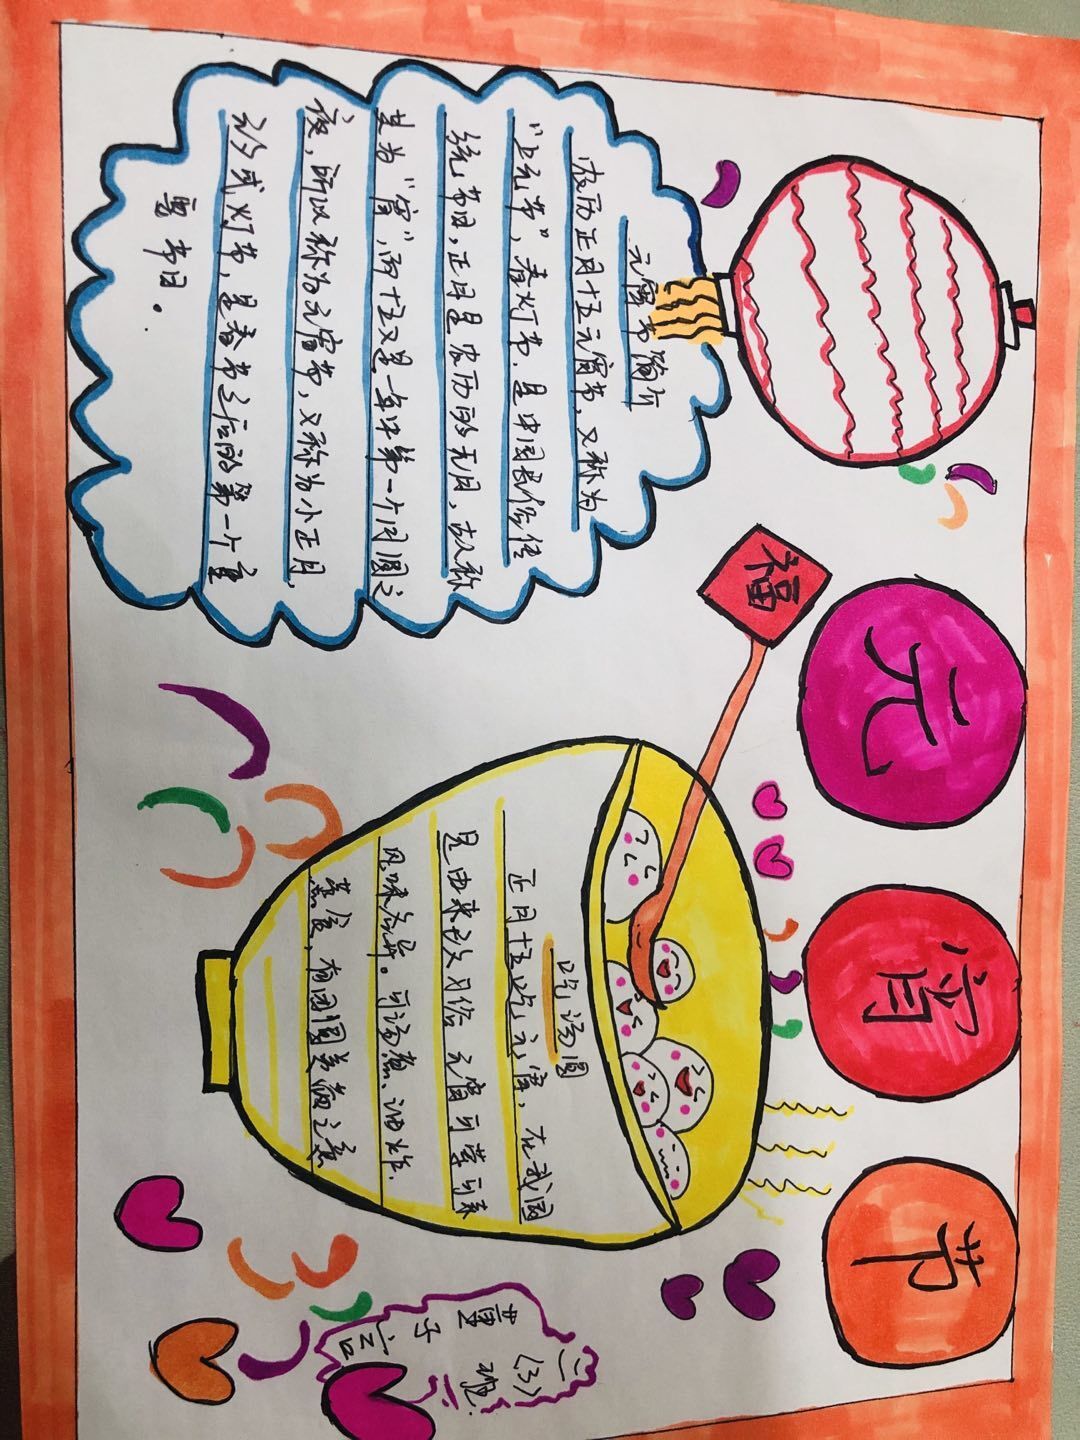 元宵节
福
元宵节简介
农历正月十五元宵节,又称为
“上元节”,春灯节.是中国民俗传
统节日,正月是农历的元月,古人称
其为“宵”,而十五又是一年中第一个月圆之
夜,所以称为元宵节,又称为小正月、
元夕或灯节,是春节之后的第一个重
要节日.
吃汤圆
正月十五吃元宵,在我国
是由来已久习俗 元宵可荤可素
风味各异。可汤煮、油炸.
蒸食,有团圆美满之意
二(3)班